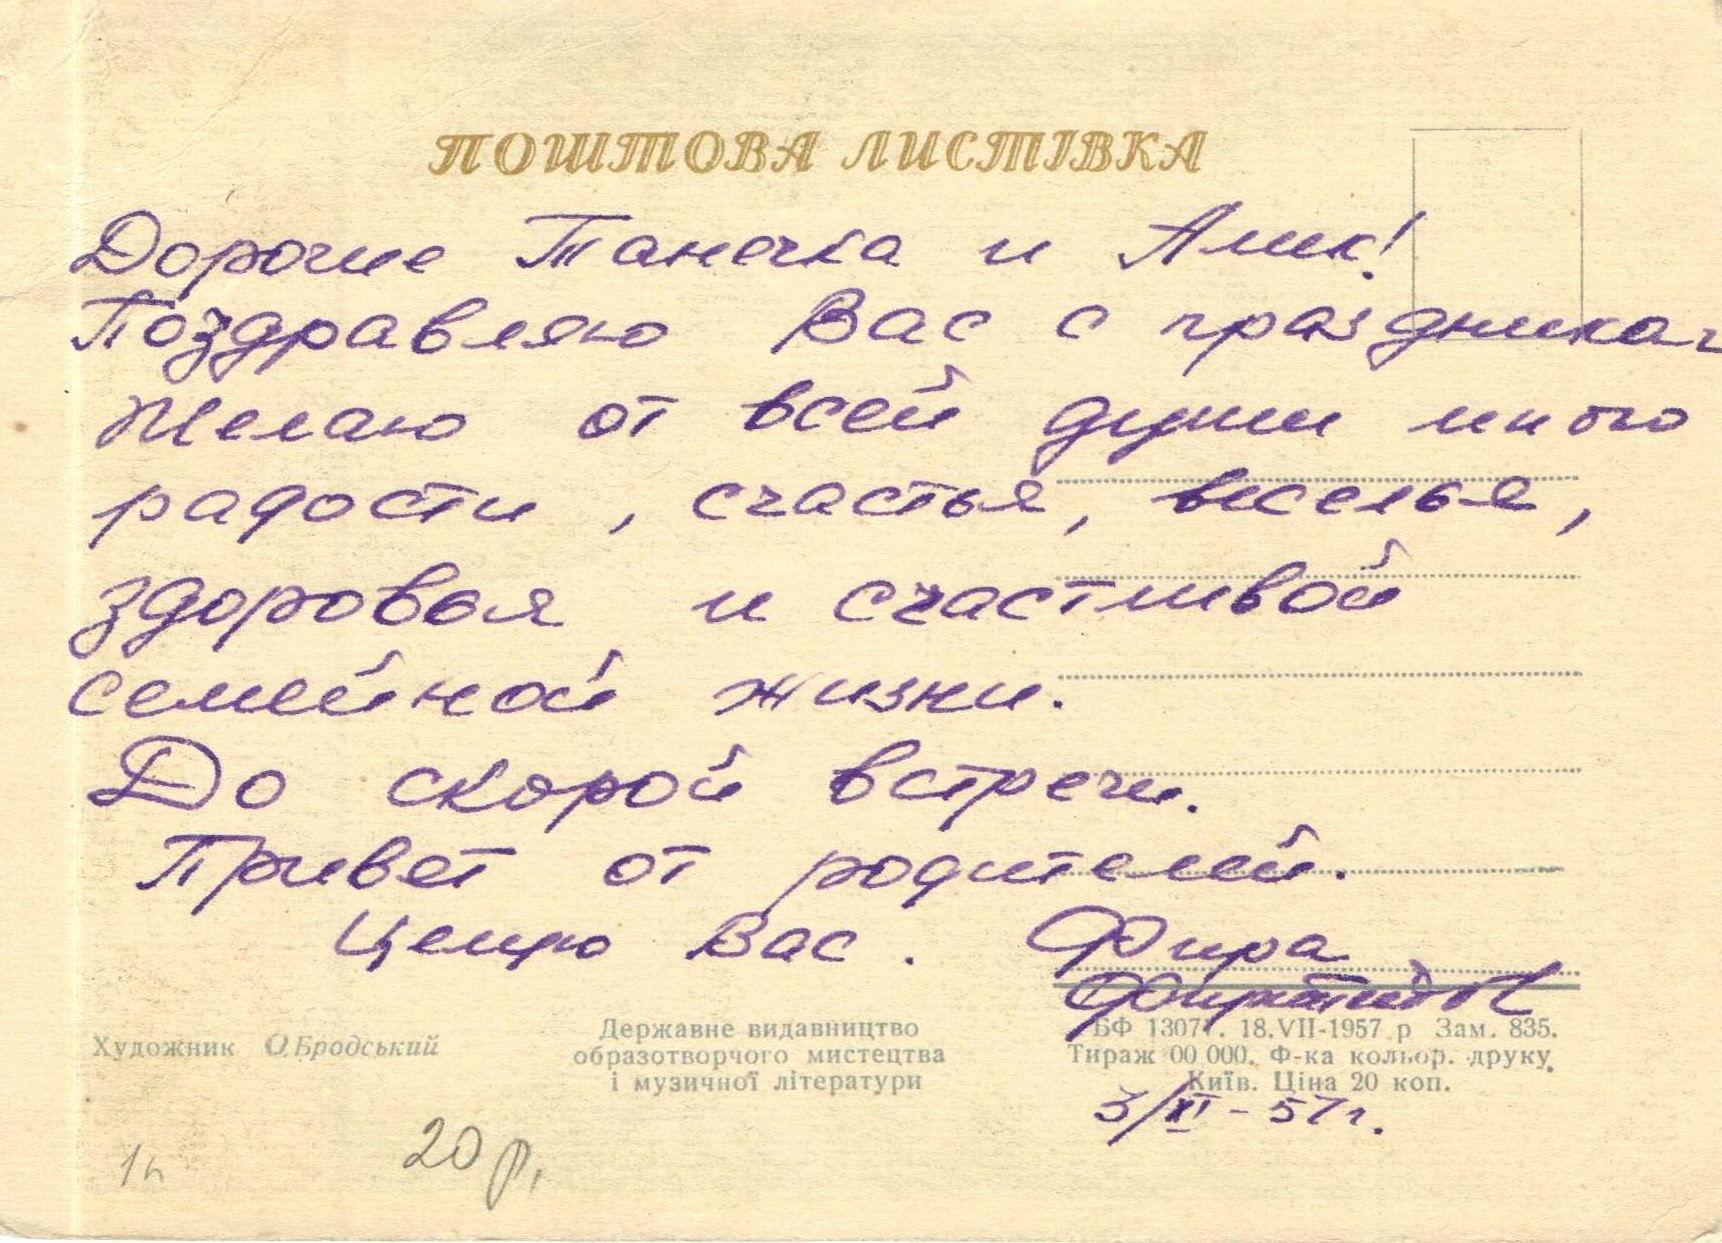 ПОШТОВА ЛИСТІВКА
Дорогие Танечка и Алик!
Поздравляю Вас с праздником
Желаю от всей души много
радости, счастья, веселья,
здоровья и счастливой
семейной жизни.
До скорой встречи.
Привет от родителей.
Целую Вас. Фира
Художник О.Бродський
Державне видавництво
образотворчого мистецтва
і музичної літератури
БФ 13077. 18.VII-1957 р Зам. 835.
Тираж 00 000. Ф-ка кольор. друку.
Київ. Ціна 20 коп.
3/XI-57г.
20 р.